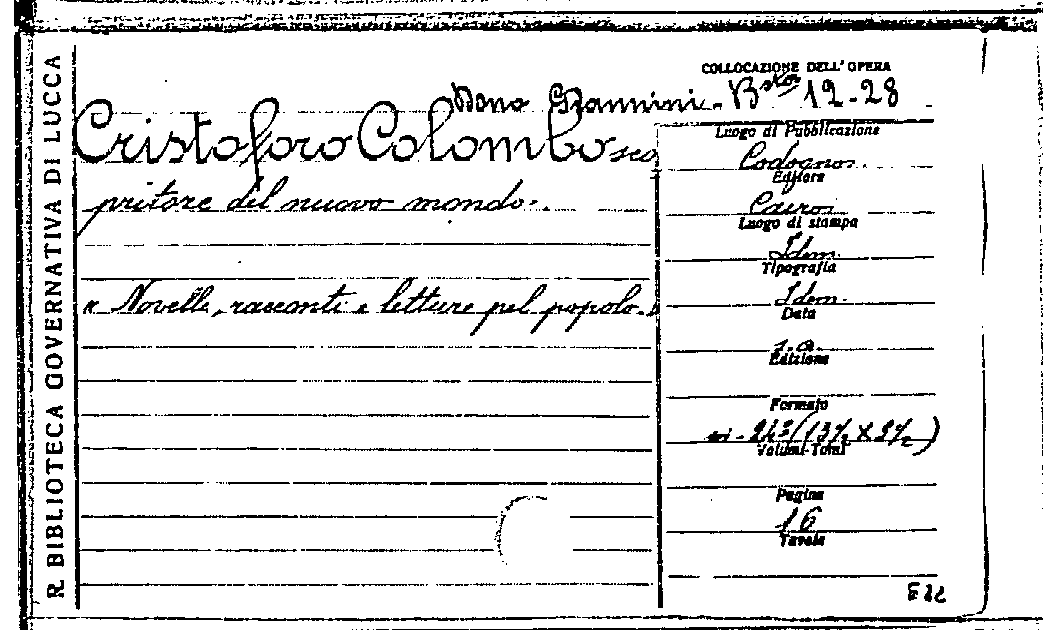 R. BIBLIOTECA GOVERNATIVA DI LUCCA
COLLOCAZIONE DELL' OPERA
Dono Giannini - B 12-28
Cristoforo Colombo sco
pritore del nuovo mondo.
« Novelle, racconti e letture pel popolo. »
Luogo di Pubblicazione
Codogno
Editore
Cairo
Luogo di stampa
Idem
Tipografia
Idem
Data
s.a.
Edizione
Formato
(13½ X 9½)
Volumi-Tomi
Pagine
16
Tavole